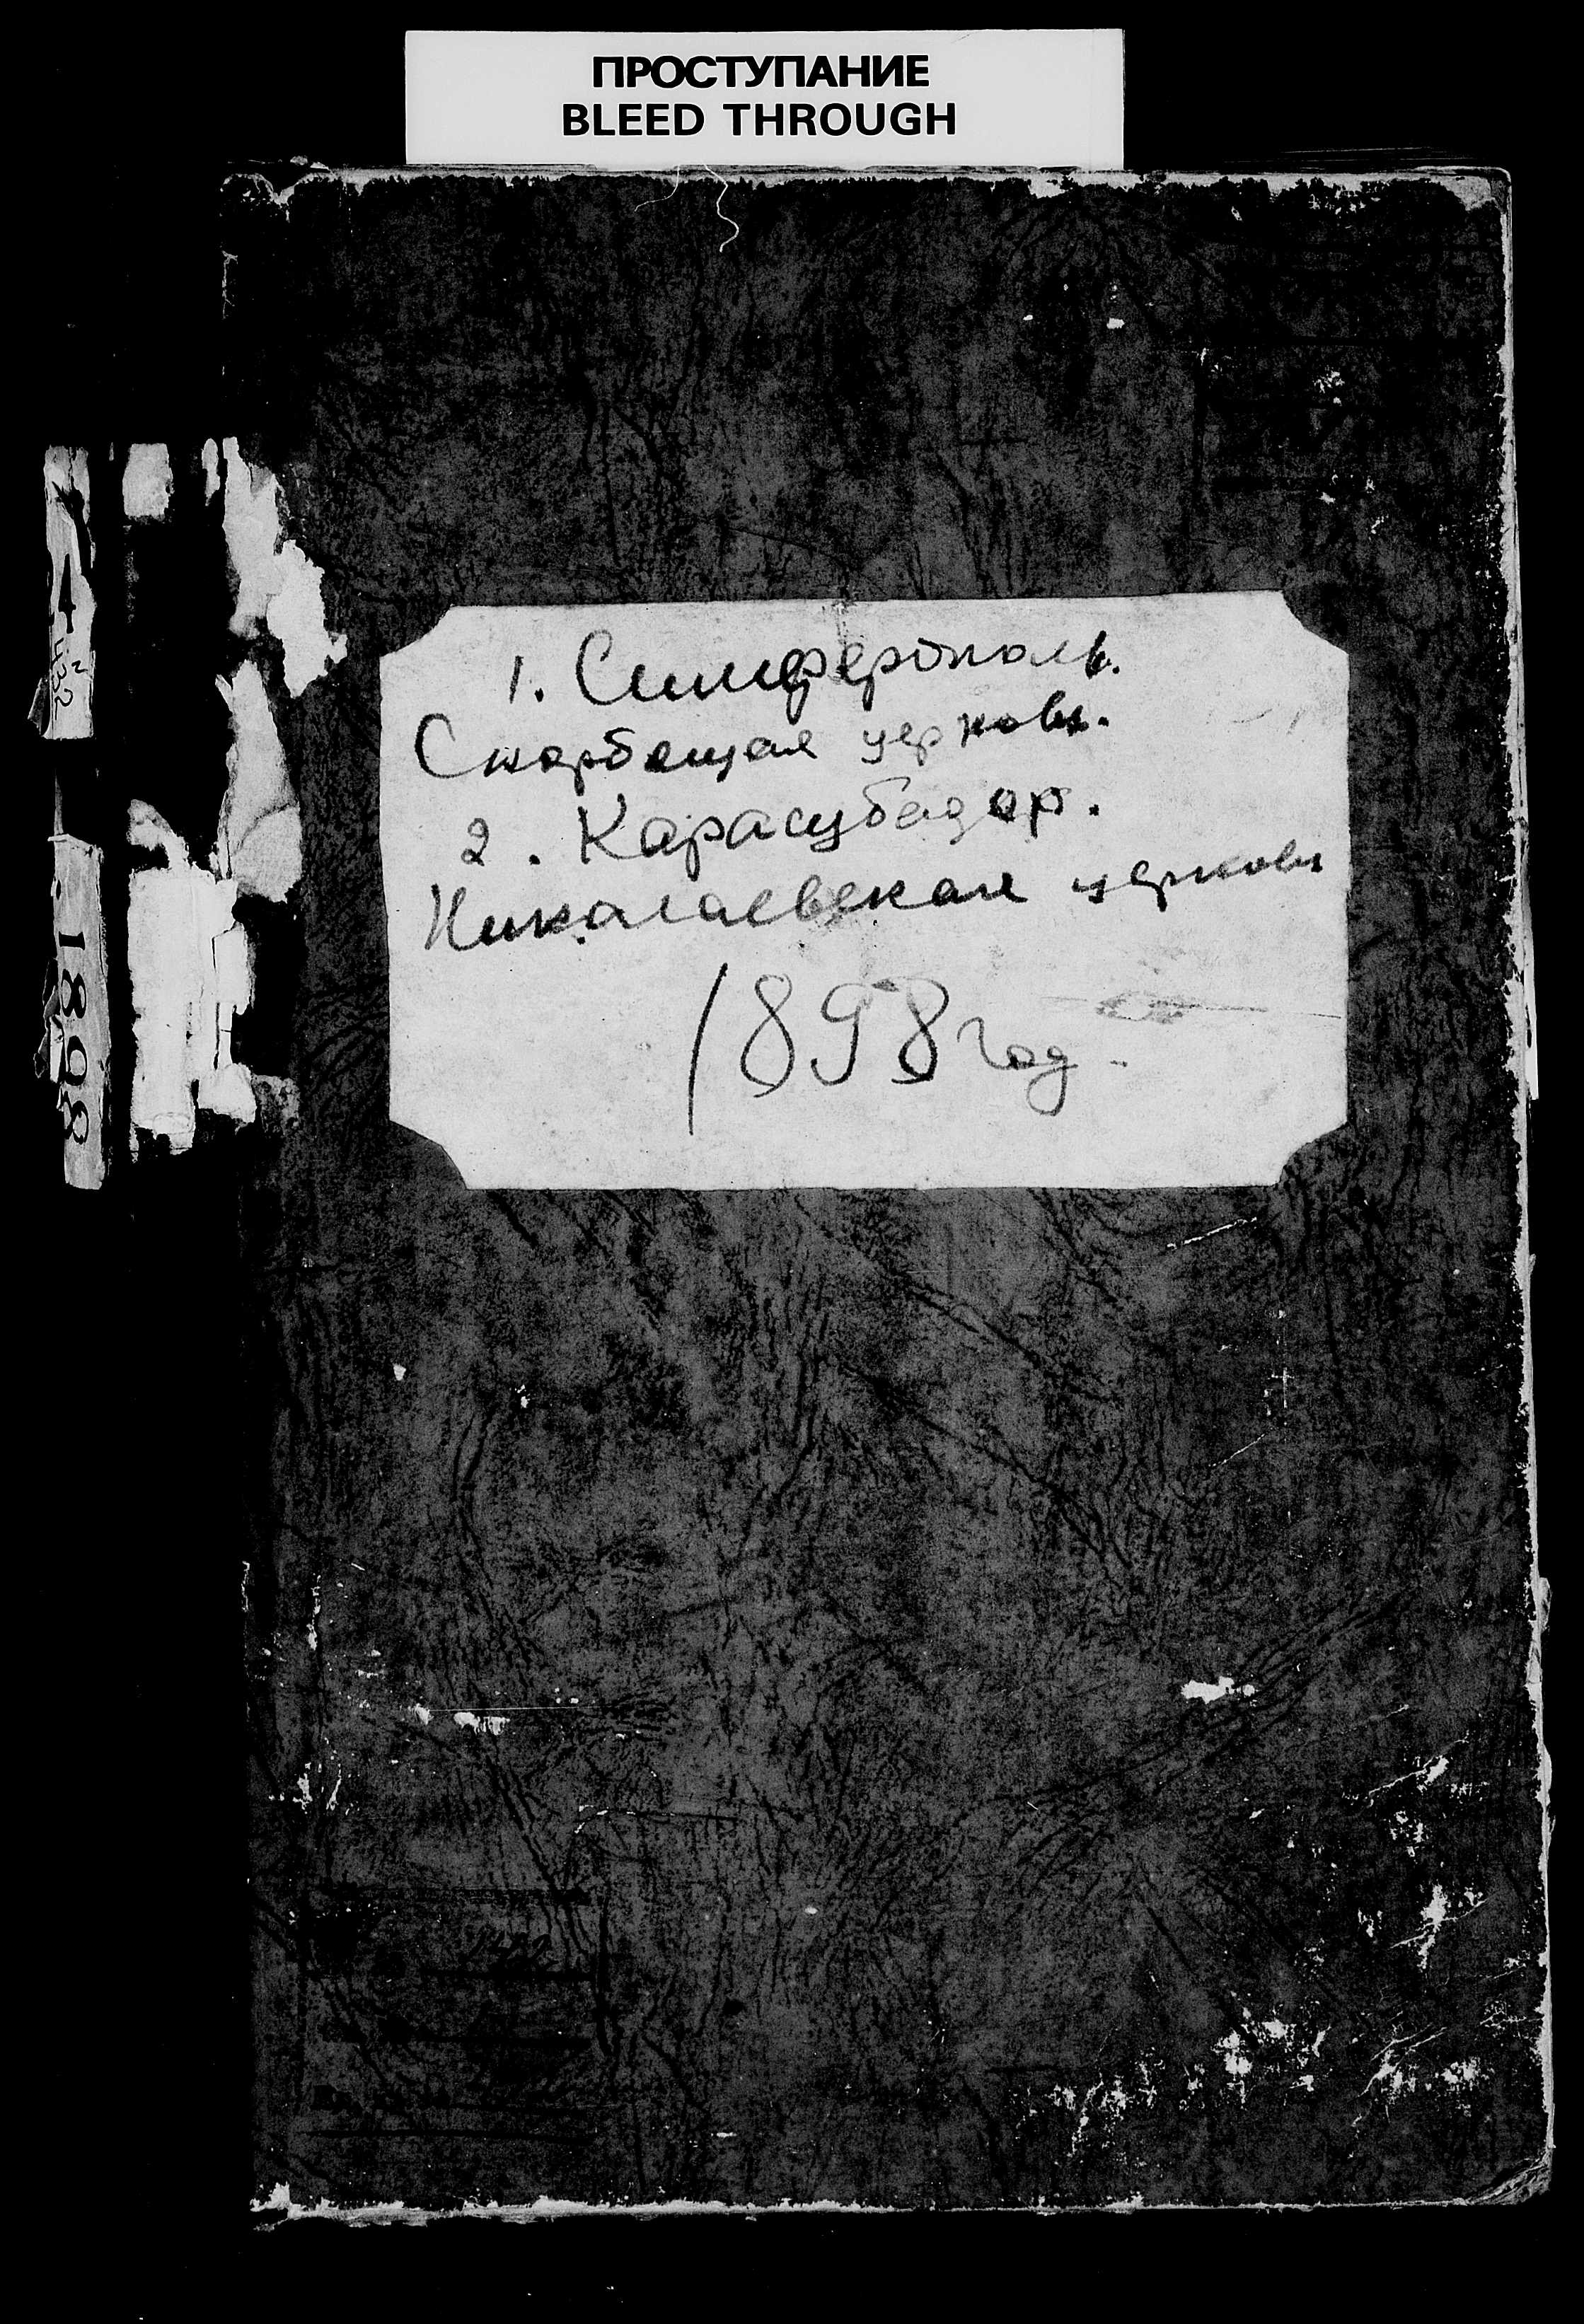 ПРОСТУПАНИЕ
BLEED THROUGH
1. Симферополь.
Скорбящая церковь.
2. Карасубазар.
Николаевская церковь
1898 год.
4
432
1898